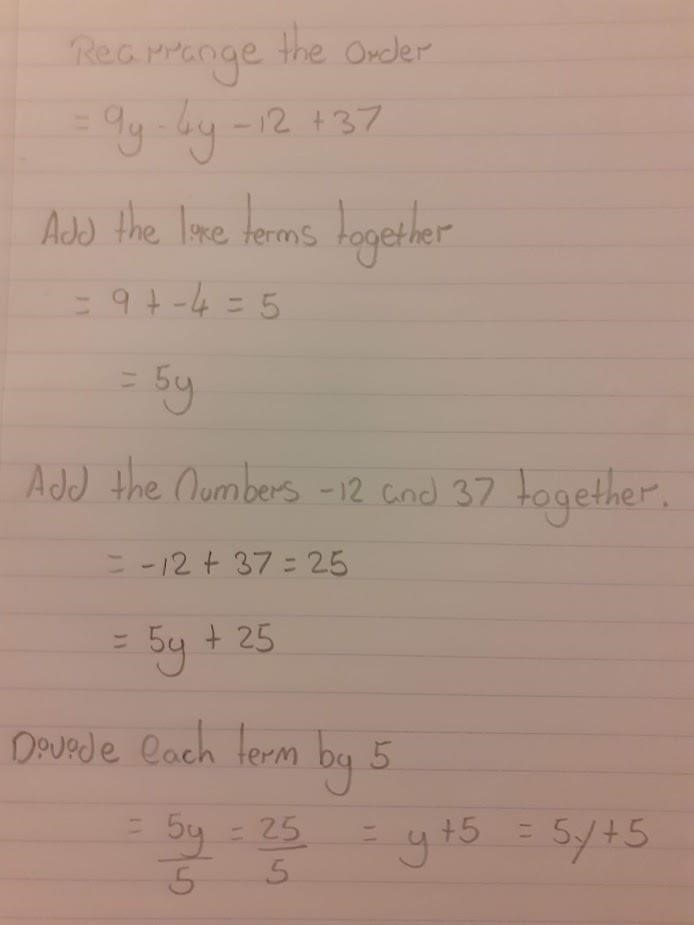 Rearrange the order
= 9y - 4y - 12 + 37
Add the like terms together
= 9 + -4 = 5
= 5y
Add the numbers -12 and 37 together.
= -12 + 37 = 25
= 5y + 25
Divide each term by 5
= 5y/5 = 25/5 = y+5 = 5y+5